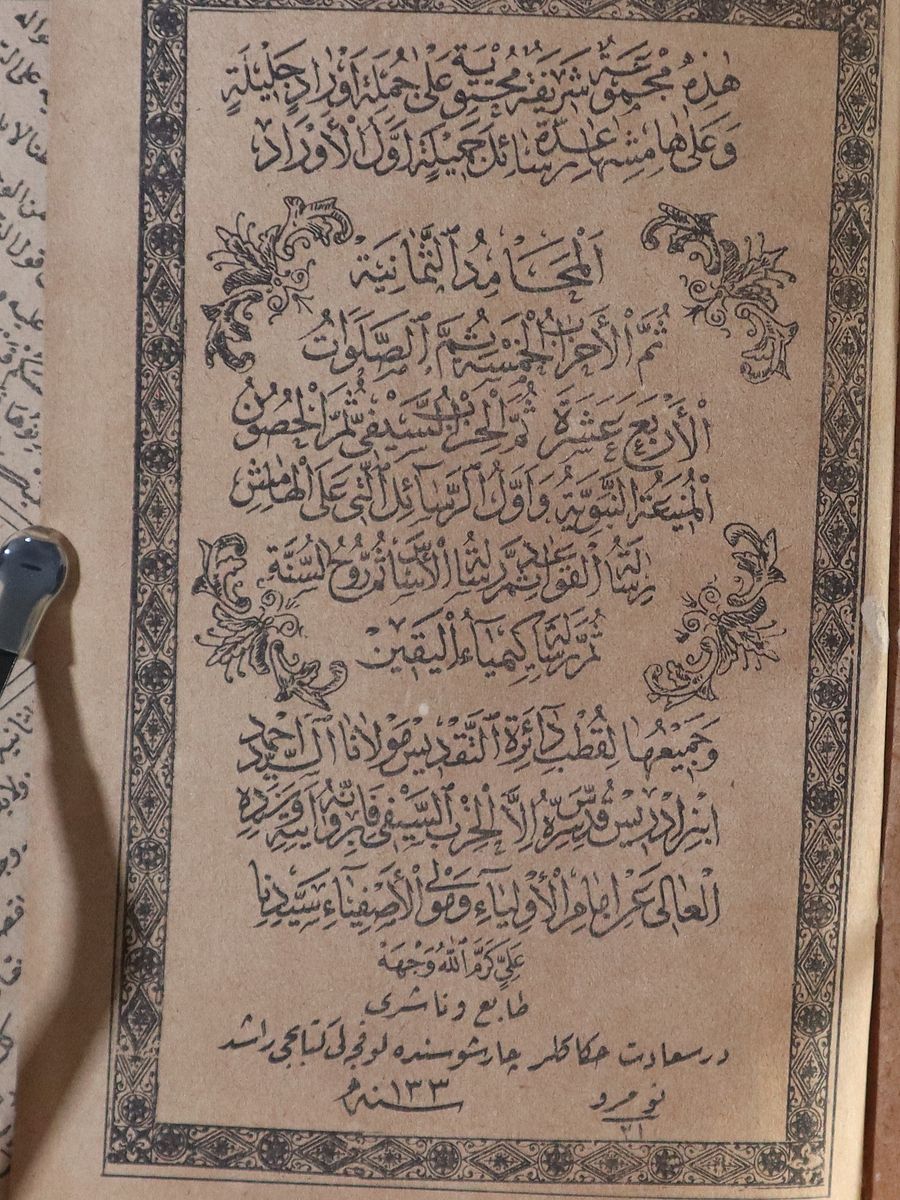 هٰذِهِ مَجْمُوعَةٌ شَرِيفَةٌ مُحْتَوِيَةٌ عَلٰى جُمْلَةِ اَوْرَادٍ جَلِيْلَةٍ
وَعَلٰى هَامِشِهَا عِدَّةُ رَسَائِلَ جَمِيْلَةٍ اَوَّلُ الْأَوْرَادِ
اَلْمَحَامِدُ الثَّمَانِيَةُ
ثُمَّ الْأَحْزَابُ الْخَمْسَةُ ثُمَّ الصَّلَوَاتُ
الْأَرْبَعَ عَشَرَةَ ثُمَّ الْحِزْبُ السَّيْفِيُّ ثُمَّ الْحُصُونُ
الْمَنِيعَةُ النَّبَوِيَّةُ وَاَوَّلُ الرَّسَآئِلِ الَّتِى عَلَى الْهَامِشِ
رِسَالَةُ الْقَوَاعِدِ ثُمَّ رِسَالَةُ الْأَسَاسِ ثُمَّ رُوحُ السُّنَّةِ
ثُمَّ رِسَالَةُ كِيْمِيَآءِ الْيَقِيْنِ
وَجَمِيْعُهَا لِقُطْبِ دَآئِرَةِ التَّقْدِيسِ مَوْلَانَا السَّيِّدِ اَحْمَدَ
ابْنِ اِدْرِيْسَ قُدِّسَ سِرُّهُ اِلَّا الْحِزْبَ السَّيْفِىَّ فَاِنَّهُ بِرِوَايَتِهِ وَسَنَدِهِ
الْعَالِى عَنْ اِمَامِ الْأَوْلِيَآءِ وَمَوْلَى الْأَصْفِيَآءِ سَيِّدِنَا
عَلِيٍّ كَرَّمَ اللّٰهُ وَجْهَهُ
طابع وناشرى
درسعادت حكاكلر چارشوسنده لوفجه لى كتابجى راشد
نومرو ٢١
سنه ١٣٣